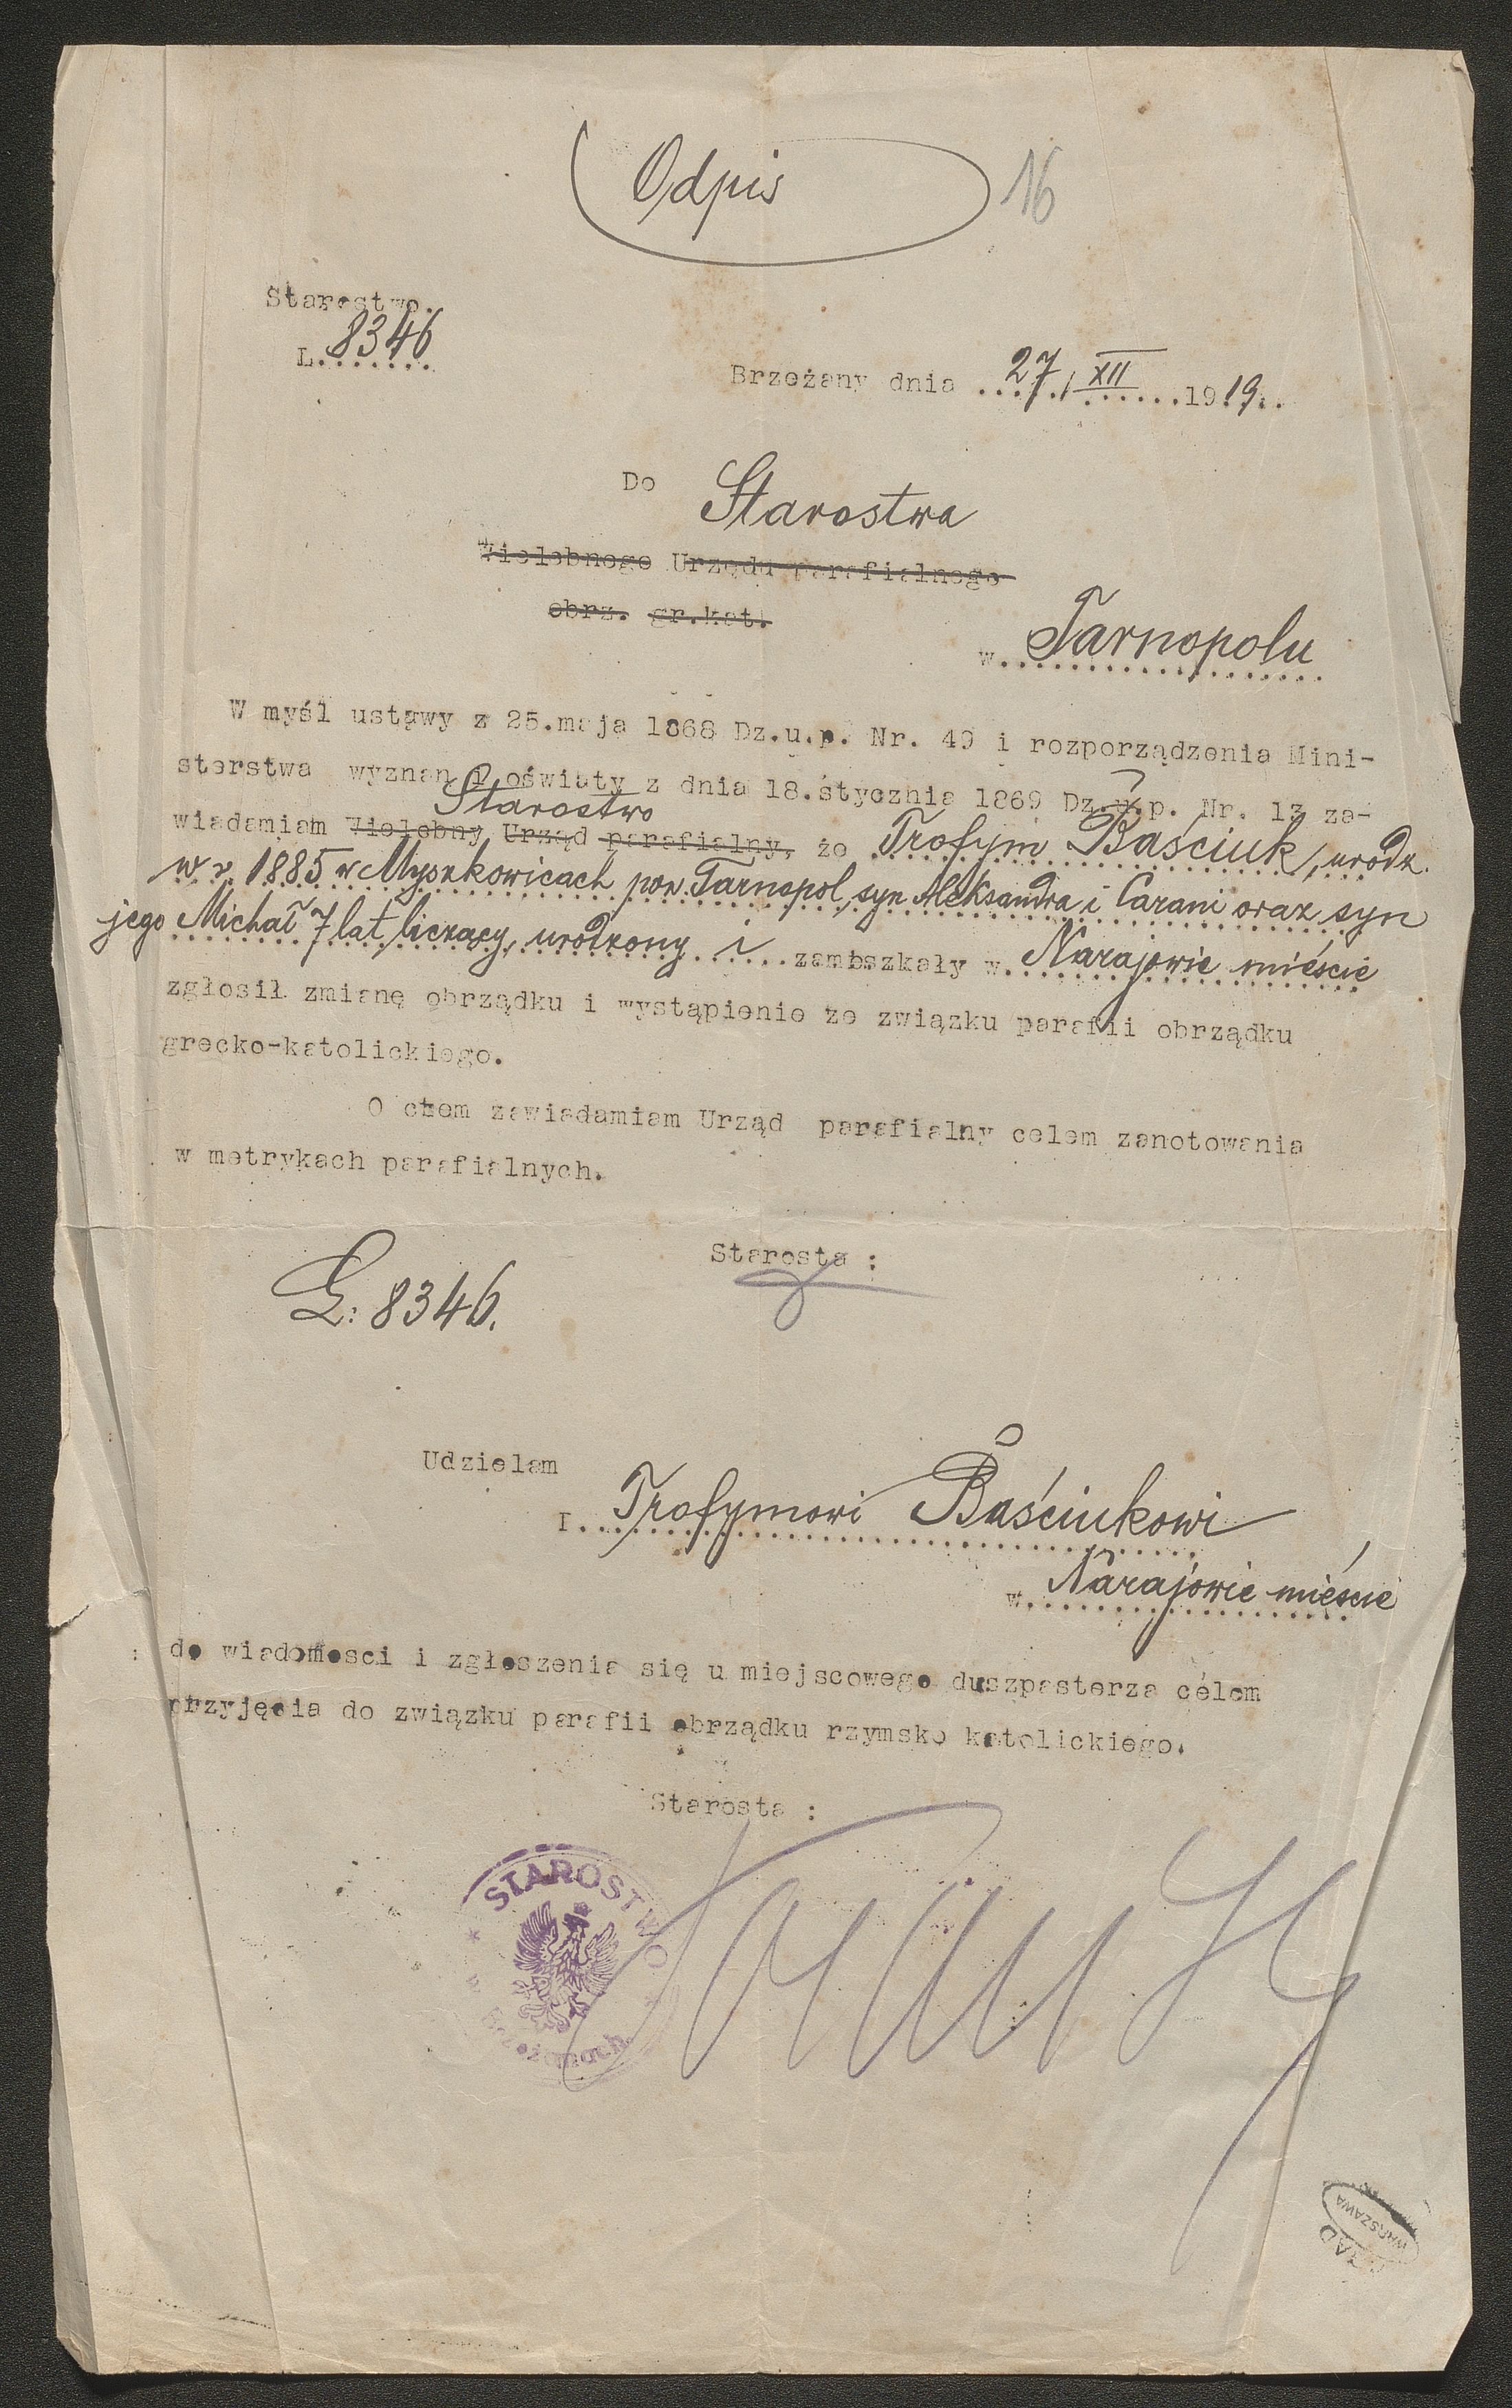 Odpis 16
Starostwo.
L. 8346
Brzeżany dnia 27/XII 1919.
Do Starostwa
Wielebnego Urzędu parafialnego
obrz. gr.kat.
w Tarnopolu
W myśl ustawy z 25.maja 1868 Dz.u.p. Nr. 49 i rozporządzenia Mini-
sterstwa wyznań i oświaty z dnia 18.stycznia 1869 Dz.u.p. Nr. 13 za-
Starostwo
wiadamiam Wielebny Urząd parafialny, że Trofym Baściuk, urodz.
w r. 1885 w Myszkowicach pow. Tarnopol, syn Aleksandra i Parani oraz syn
jego Michał 7 lat liczący, urodzony i zamieszkały w Narajowie mieście
zgłosił zmianę obrządku i wystąpienie ze związku parafii obrządku
grecko-katolickiego.
O czem zawiadamiam Urząd parafialny celem zanotowania
w metrykach parafialnych.
Starosta :
L: 8346.
Udzielam
I. Trofymowi Baściukowi
w Narajowie mieście
do wiadomosci i zgłoszenia się u miejscowego duszpasterza celem
przyjęcia do związku parafii obrządku rzymsko katolickiego.
Starosta :
STAROSTWO
w Brzeżanach
WARSZAWA